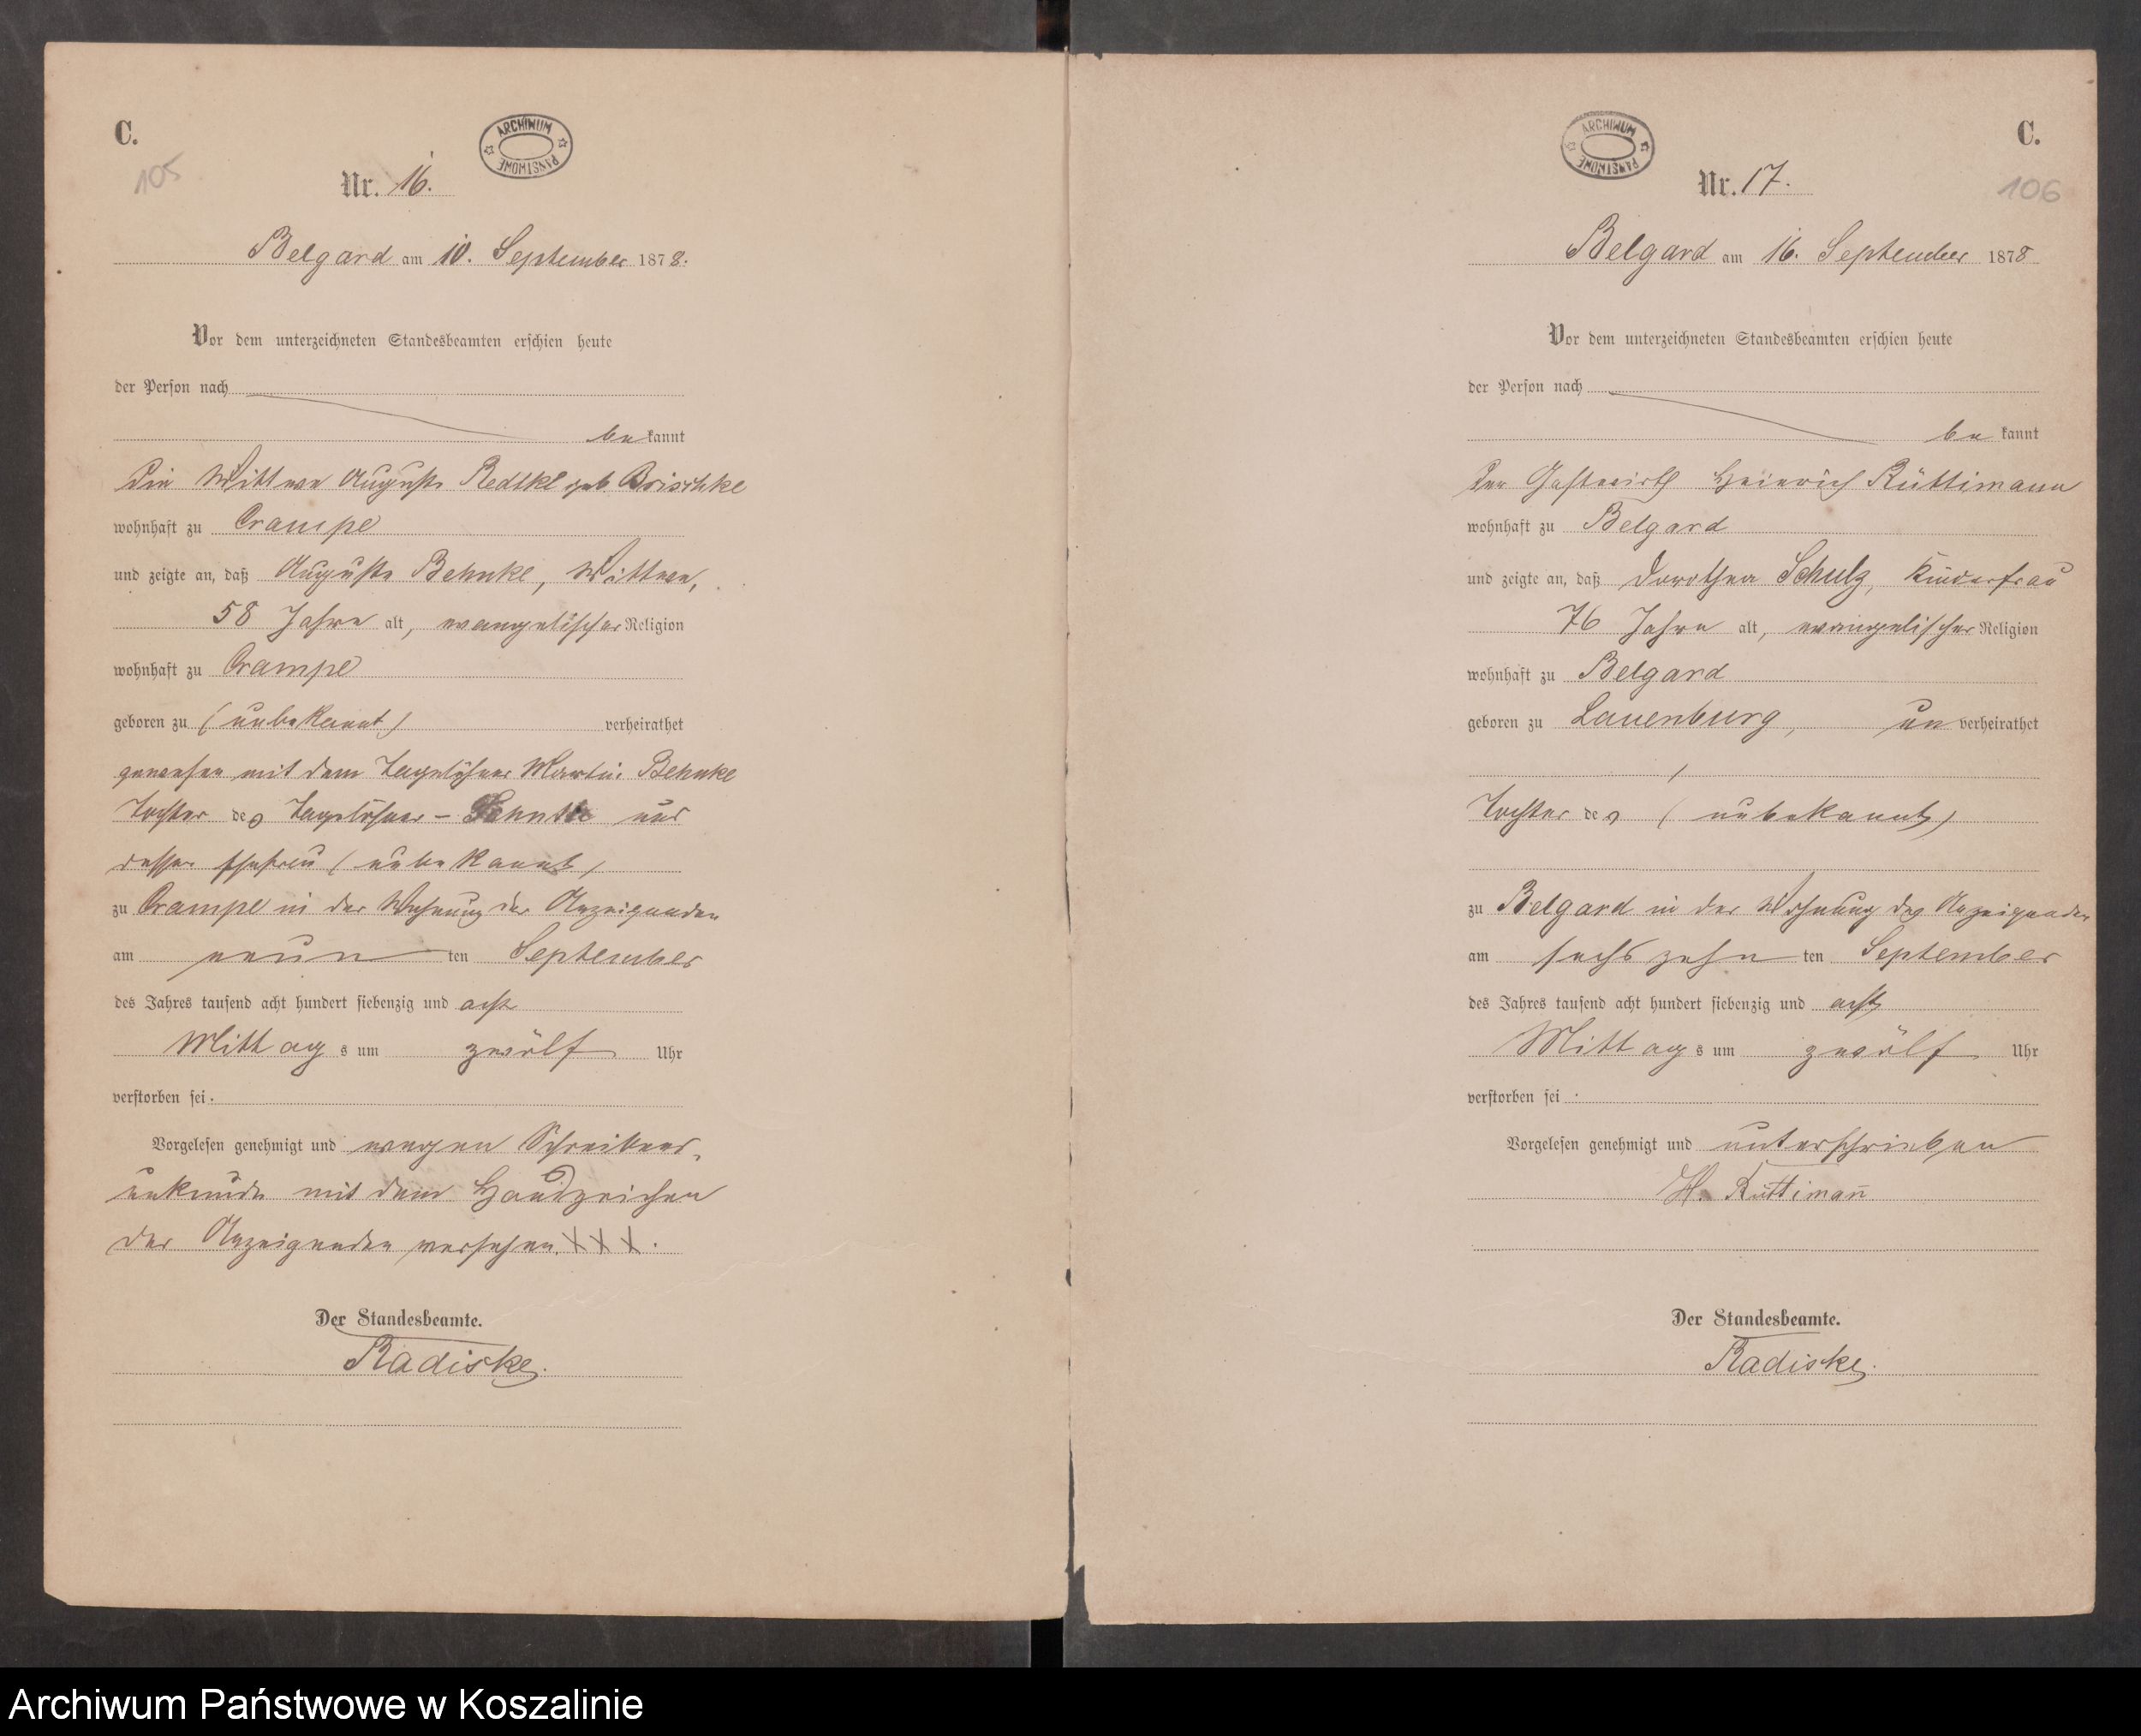 C.
105
ARCHIWUM PAŃSTWOWE
Nr. 16.
Belgard am 10. September 1878.
Vor dem unterzeichneten Standesbeamten erschien heute
der Person nach
bekannt
die Wittwe Auguste Redtke geb. Brischke
wohnhaft zu Crampe
und zeigte an, daß Auguste Behnke, Wittwe,
58 Jahre alt, evangelischer Religion
wohnhaft zu Crampe
geboren zu (unbekannt) verheirathet
gewesen mit dem Tagelöhner Martin Behnke
Tochter des Tagelöhner - und
dessen Ehefrau (unbekannt)
zu Crampe in der Wohnung der Anzeigenden
am neunten September
des Jahres tausend acht hundert siebenzig und acht
Mittags um zwölf Uhr
verstorben sei.
Vorgelesen genehmigt und wegen Schreibens-
unkunde mit dem Handzeichen
der Anzeigenden versehen. XXX.
Der Standesbeamte.
Radiske.
C.
106
ARCHIWUM PAŃSTWOWE
Nr. 17.
Belgard am 16. September 1878
Vor dem unterzeichneten Standesbeamten erschien heute
der Person nach
bekannt
der Gastwirth Heinrich Rüttimann
wohnhaft zu Belgard
und zeigte an, daß Dorothea Schulz, Kinderfrau
76 Jahre alt, evangelischer Religion
wohnhaft zu Belgard
geboren zu Lauenburg, unverheirathet
/
Tochter des (unbekannt)
zu Belgard in der Wohnung des Anzeigenden
am sechszehnten September
des Jahres tausend acht hundert siebenzig und acht
Mittags um zwölf Uhr
verstorben sei.
Vorgelesen genehmigt und unterschrieben
H. Rüttimañ
Der Standesbeamte.
Radiske.
Archiwum Państwowe w Koszalinie